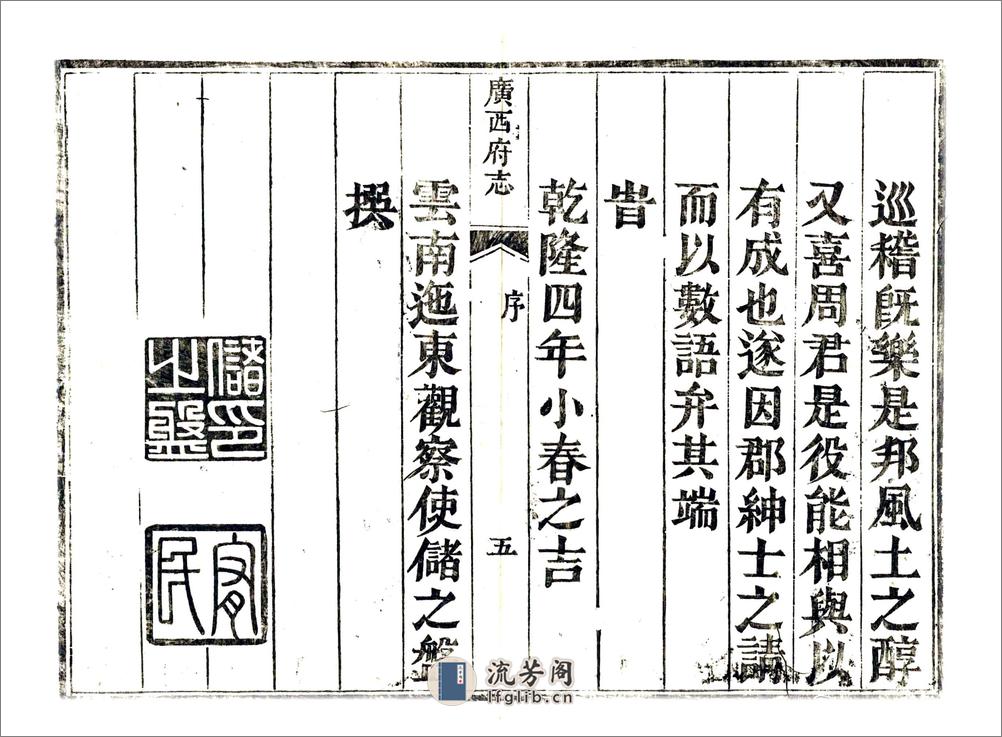 巡稽旣樂是邦風土之醇
又喜周君是役能相與以
有成也遂因郡紳士之請
而以數語弁其端
旹
乾隆四年小春之吉
廣西府志
序
五
雲南迤東觀察使儲之盤
撰
儲印
之盤
民
流芳阁
lfglib.cn